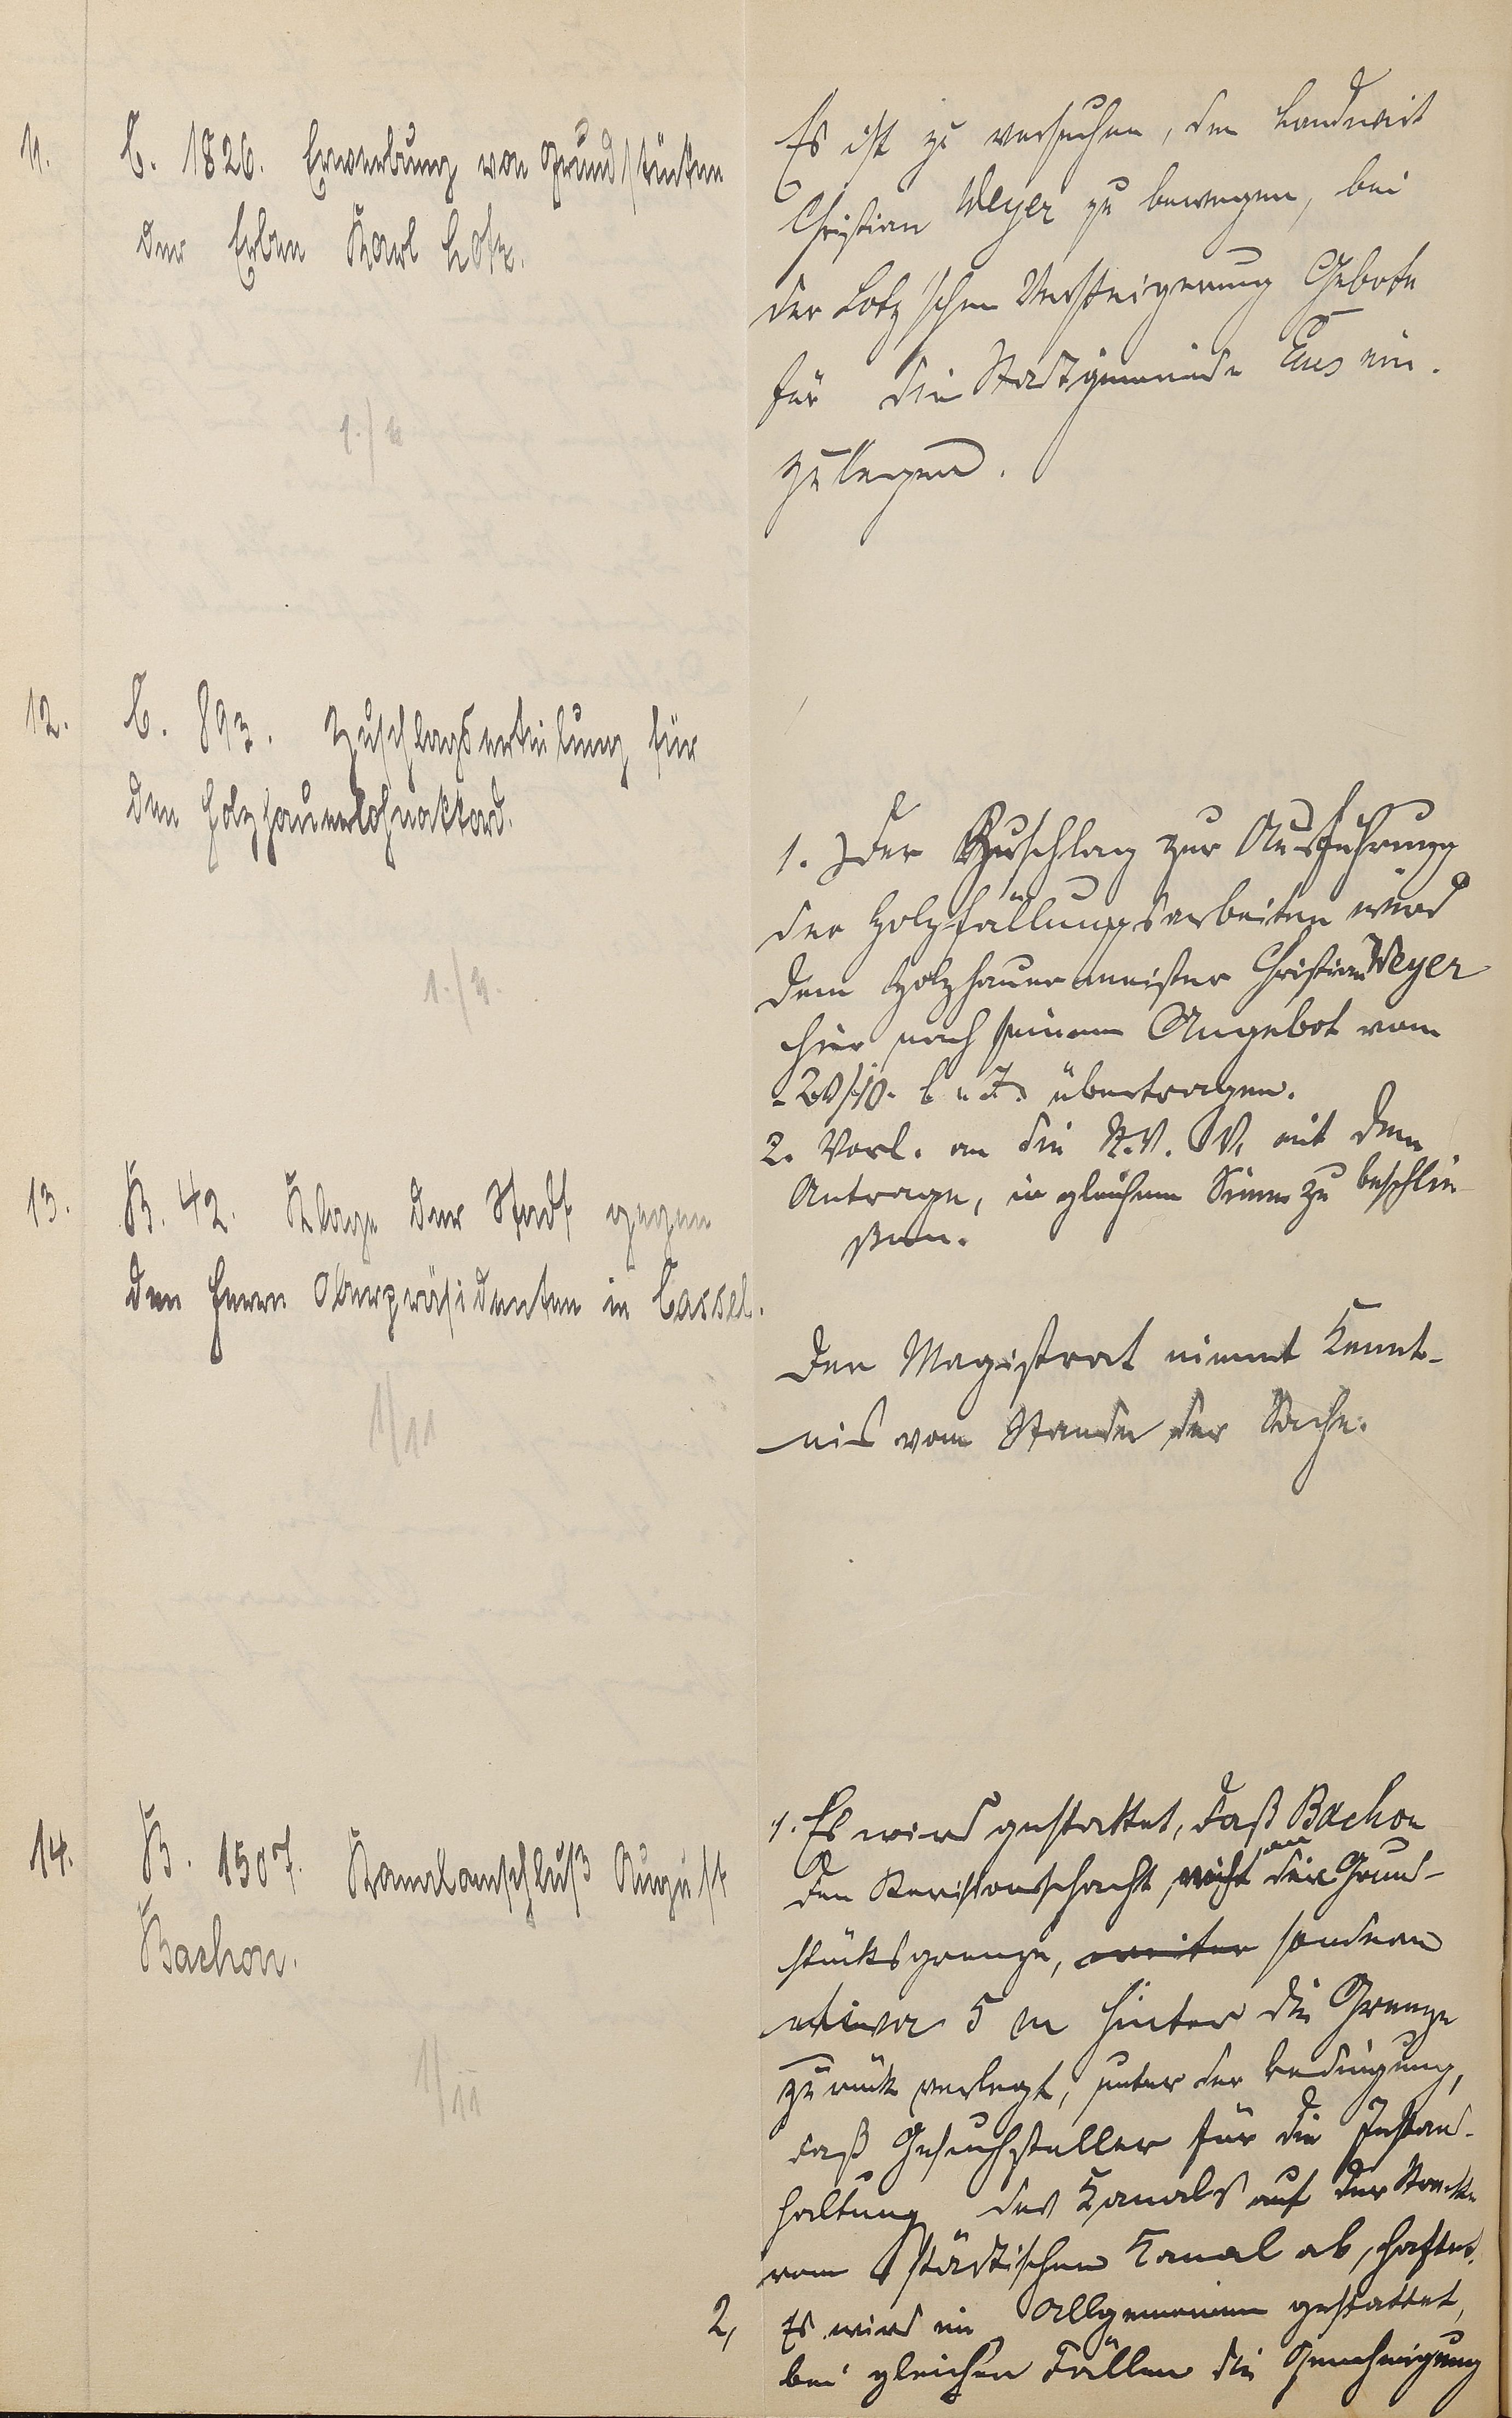 11.
C. 1826. Erwerbung von Grundstücken
der Erben Karl Lotz.
1./11
Es ist zu versuchen, den Landwirt
Christian Meyer zu bewegen, bei
der Lotz'schen Versteigerung Gebote
für die Stadtgemeinde Ems ein-
zulegen.
12.
C. 893. Zuschlagserteilung für
den Holzhauerlohnakkord.
1./11.
1. Der Zuschlag zur Ausführung
der Holzfällungsarbeiten wird
dem Holzhauermeister Christian Meyer
hier nach seinem Angebot vom
20/10. l. J. übertragen.
2. Vorl. an die St. V. V. mit dem
Antrage, in gleichem Sinne zu beschlie-
ßen.
13.
B. 42. Klage der Stadt gegen
den Herrn Oberpräsidenten in Cassel.
1/11
Der Magistrat nimmt Kennt-
nis vom Stande der Sache.
14.
B. 1507. Kanalanschluß August
Bachon.
1/11
1. Es wird gestattet, daß Bachon
den Revisionsschacht, nicht an die Grund-
stücksgrenze, weiter sondern
etwa 5 m hinter die Grenze
zurück verlegt, unter der Bedingung,
daß Gesuchsteller für die Instand-
haltung des Kanals auf der Strecke
vom städtischen Kanal ab, haftet.
2, Es wird im Allgemeinen gestattet,
bei gleichen Fällen die Genehmigung